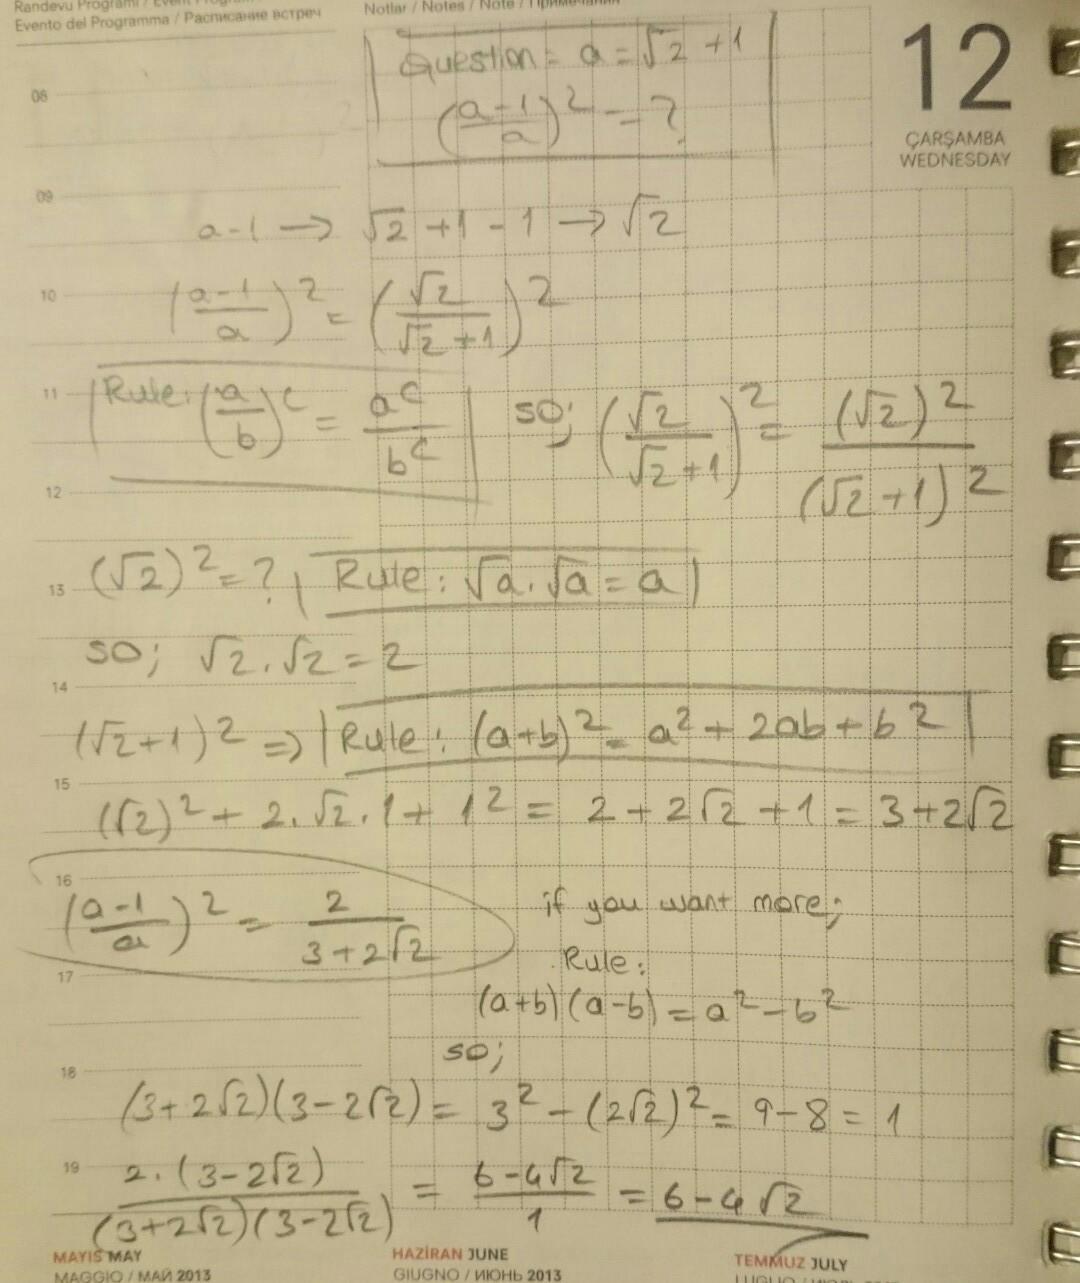 Randevu Programı / Event Program
Evento del Programma / Расписание встреч
Notlar / Notes / Note / Примечания
12
ÇARŞAMBA
WEDNESDAY
Question = a = √2 + 1
(a-1/a)² = ?
08
09
a-1 → √2 + 1 - 1 → √2
10
(a-1/a)² = (√2/√2+1)²
11
Rule: (a/b)^c = a^c/b^c
so; (√2/√2+1)² = (√2)²/(√2+1)²
12
13
(√2)² = ? Rule: √a . √a = a
so; √2 . √2 = 2
14
(√2+1)² => Rule: (a+b)² = a² + 2ab + b²
15
(√2)² + 2.√2.1 + 1² = 2 + 2√2 + 1 = 3+2√2
16
(a-1/a)² = 2/3+2√2
17
if you want more;
Rule:
(a+b)(a-b) = a² - b²
so;
18
(3+2√2)(3-2√2) = 3² - (2√2)² = 9-8 = 1
19
2.(3-2√2)/(3+2√2)(3-2√2) = 6-4√2/1 = 6-4√2
MAYIS MAY
MAGGIO / МАЙ 2013
HAZİRAN JUNE
GIUGNO / ИЮНЬ 2013
TEMMUZ JULY